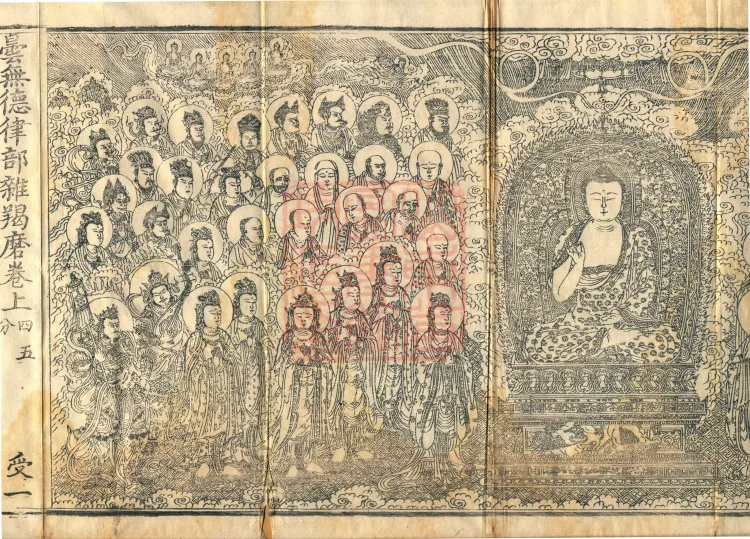 曇無德律部雜羯磨卷上
四分
五
受一